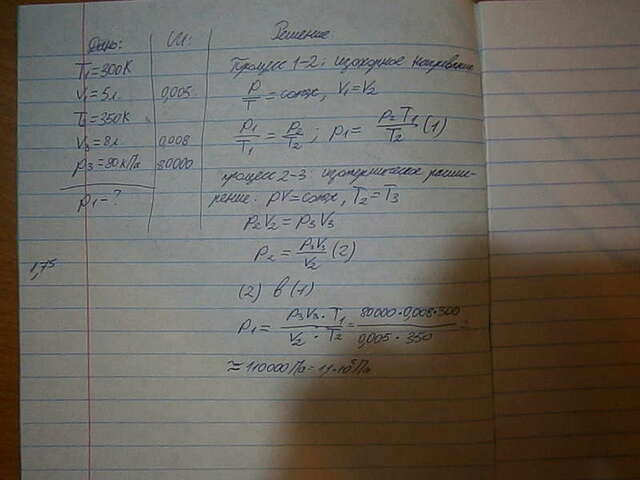 Дано:
СИ:
Решение
T₁=300К
V₁=5л
0,005
T₂=350К
V₃=8л
0,008
p₃=80кПа
80000
p₁-?
1,75
Процесс 1-2: изохорное нагревание
p/T=const, V₁=V₂
p₁/T₁=p₂/T₂; p₁=p₂T₁/T₂ (1)
процесс 2-3: изотермическое расши-
рение: pV=const, T₂=T₃
p₂V₂=p₃V₃
p₂=p₃V₃/V₂ (2)
(2) в (1)
p₁=p₃V₃·T₁/V₂·T₂=80000·0,008·300/0,005·350=
≈110000Па=1,1·10⁵Па